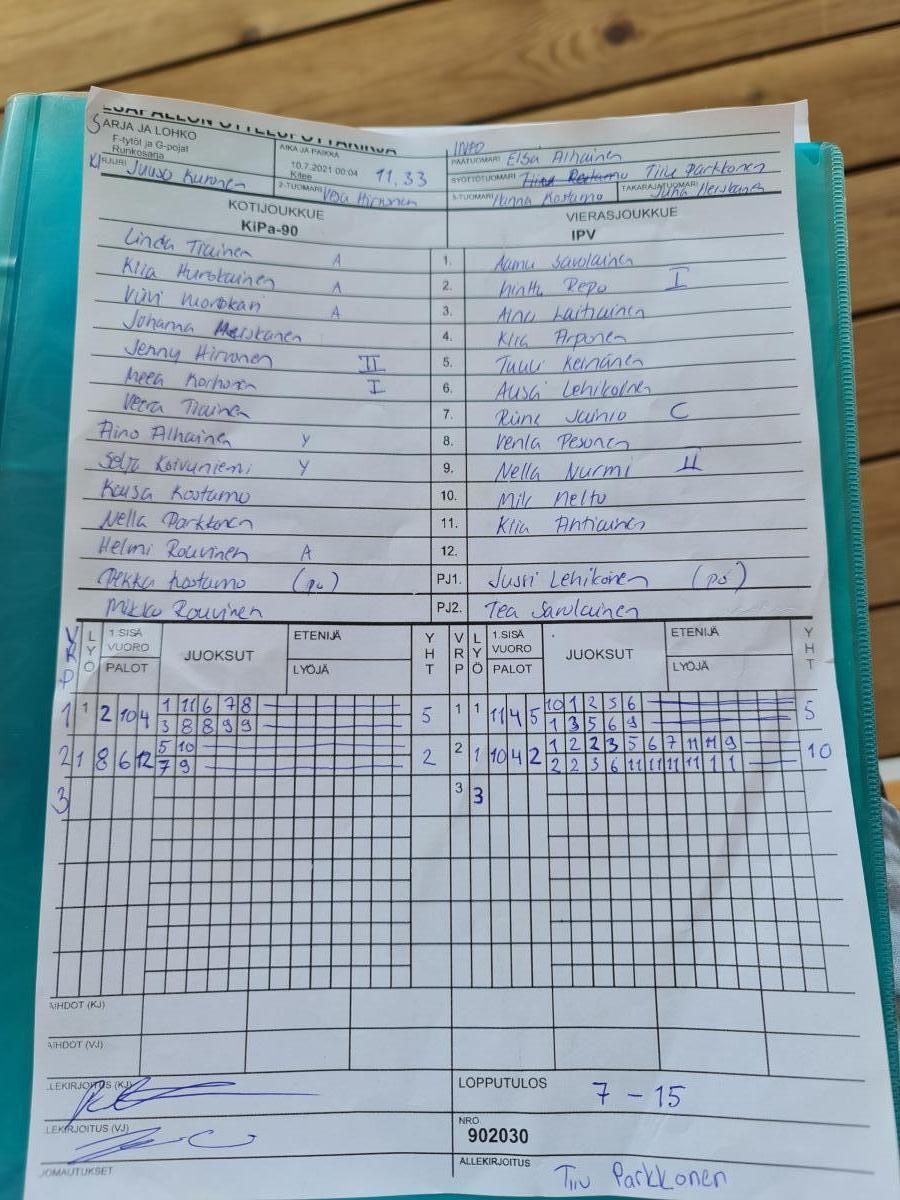 SARJA JA LOHKO
F-tytöt ja G-pojat
Runkosarja
AIKA JA PAIKKA
10.7.2021 00:04 11,33
Kitee
INFO
PÄÄTUOMARI Elsa Alhainen
SYÖTTÖTUOMARI Tiiu Parkkonen
KIRJURI Juuso Kuronen
2-TUOMARI Vesa Hirvonen
3-TUOMARI Minna Kostamo
TAKARAJATUOMARI Juha Heiskanen
KOTIJOUKKUE
KiPa-90
VIERASJOUKKUE
IPV
Linda Tiainen A 1. Aamu Savolainen
Kiia Hurskainen A 2. Minttu Repo I
Viivi A 3. Aino Laitiainen
Johanna Heiskanen 4. Kiia Arponen
Jenny Hirvonen II 5. Tuuli Keinänen
Meea Korhonen I 6. Lehikoinen
Veera Tiainen 7. Riina C
Aino Alhainen Y 8. Venla Pesonen
Selja Koivuniemi Y 9. Nella Nurmi II
Kaisa Kostamo 10.
Nella Parkkonen 11. Kiia Antiainen
Helmi Rouvinen A 12.
Pekka Kostamo PJ1. Jussi Lehikoinen
Mikko Rouvinen PJ2. Tea Savolainen
VRP LYÖ 1.SISÄ VUORO PALOT JUOKSUT ETENIJÄ LYÖJÄ YHT VRP LYÖ 1.SISÄ VUORO PALOT JUOKSUT ETENIJÄ LYÖJÄ YHT
1 1 2 10 4 1 11 6 7 8 5 1 1 11 4 5 10 1 2 5 6 5
3 8 8 9 9 1 3 5 6 9
2 1 8 6 12 5 10 2 2 1 10 4 2 1 2 2 3 5 6 7 11 11 9 10
7 9 2 2 3 6 11 11 11 11 1 1
3 3 3
AIHDOT (KJ)
AIHDOT (VJ)
LEKIRJOITUS (KJ)
LOPPUTULOS 7 - 15
LEKIRJOITUS (VJ)
NRO
902030
JOMAUTUKSET
ALLEKIRJOITUS Tiiu Parkkonen